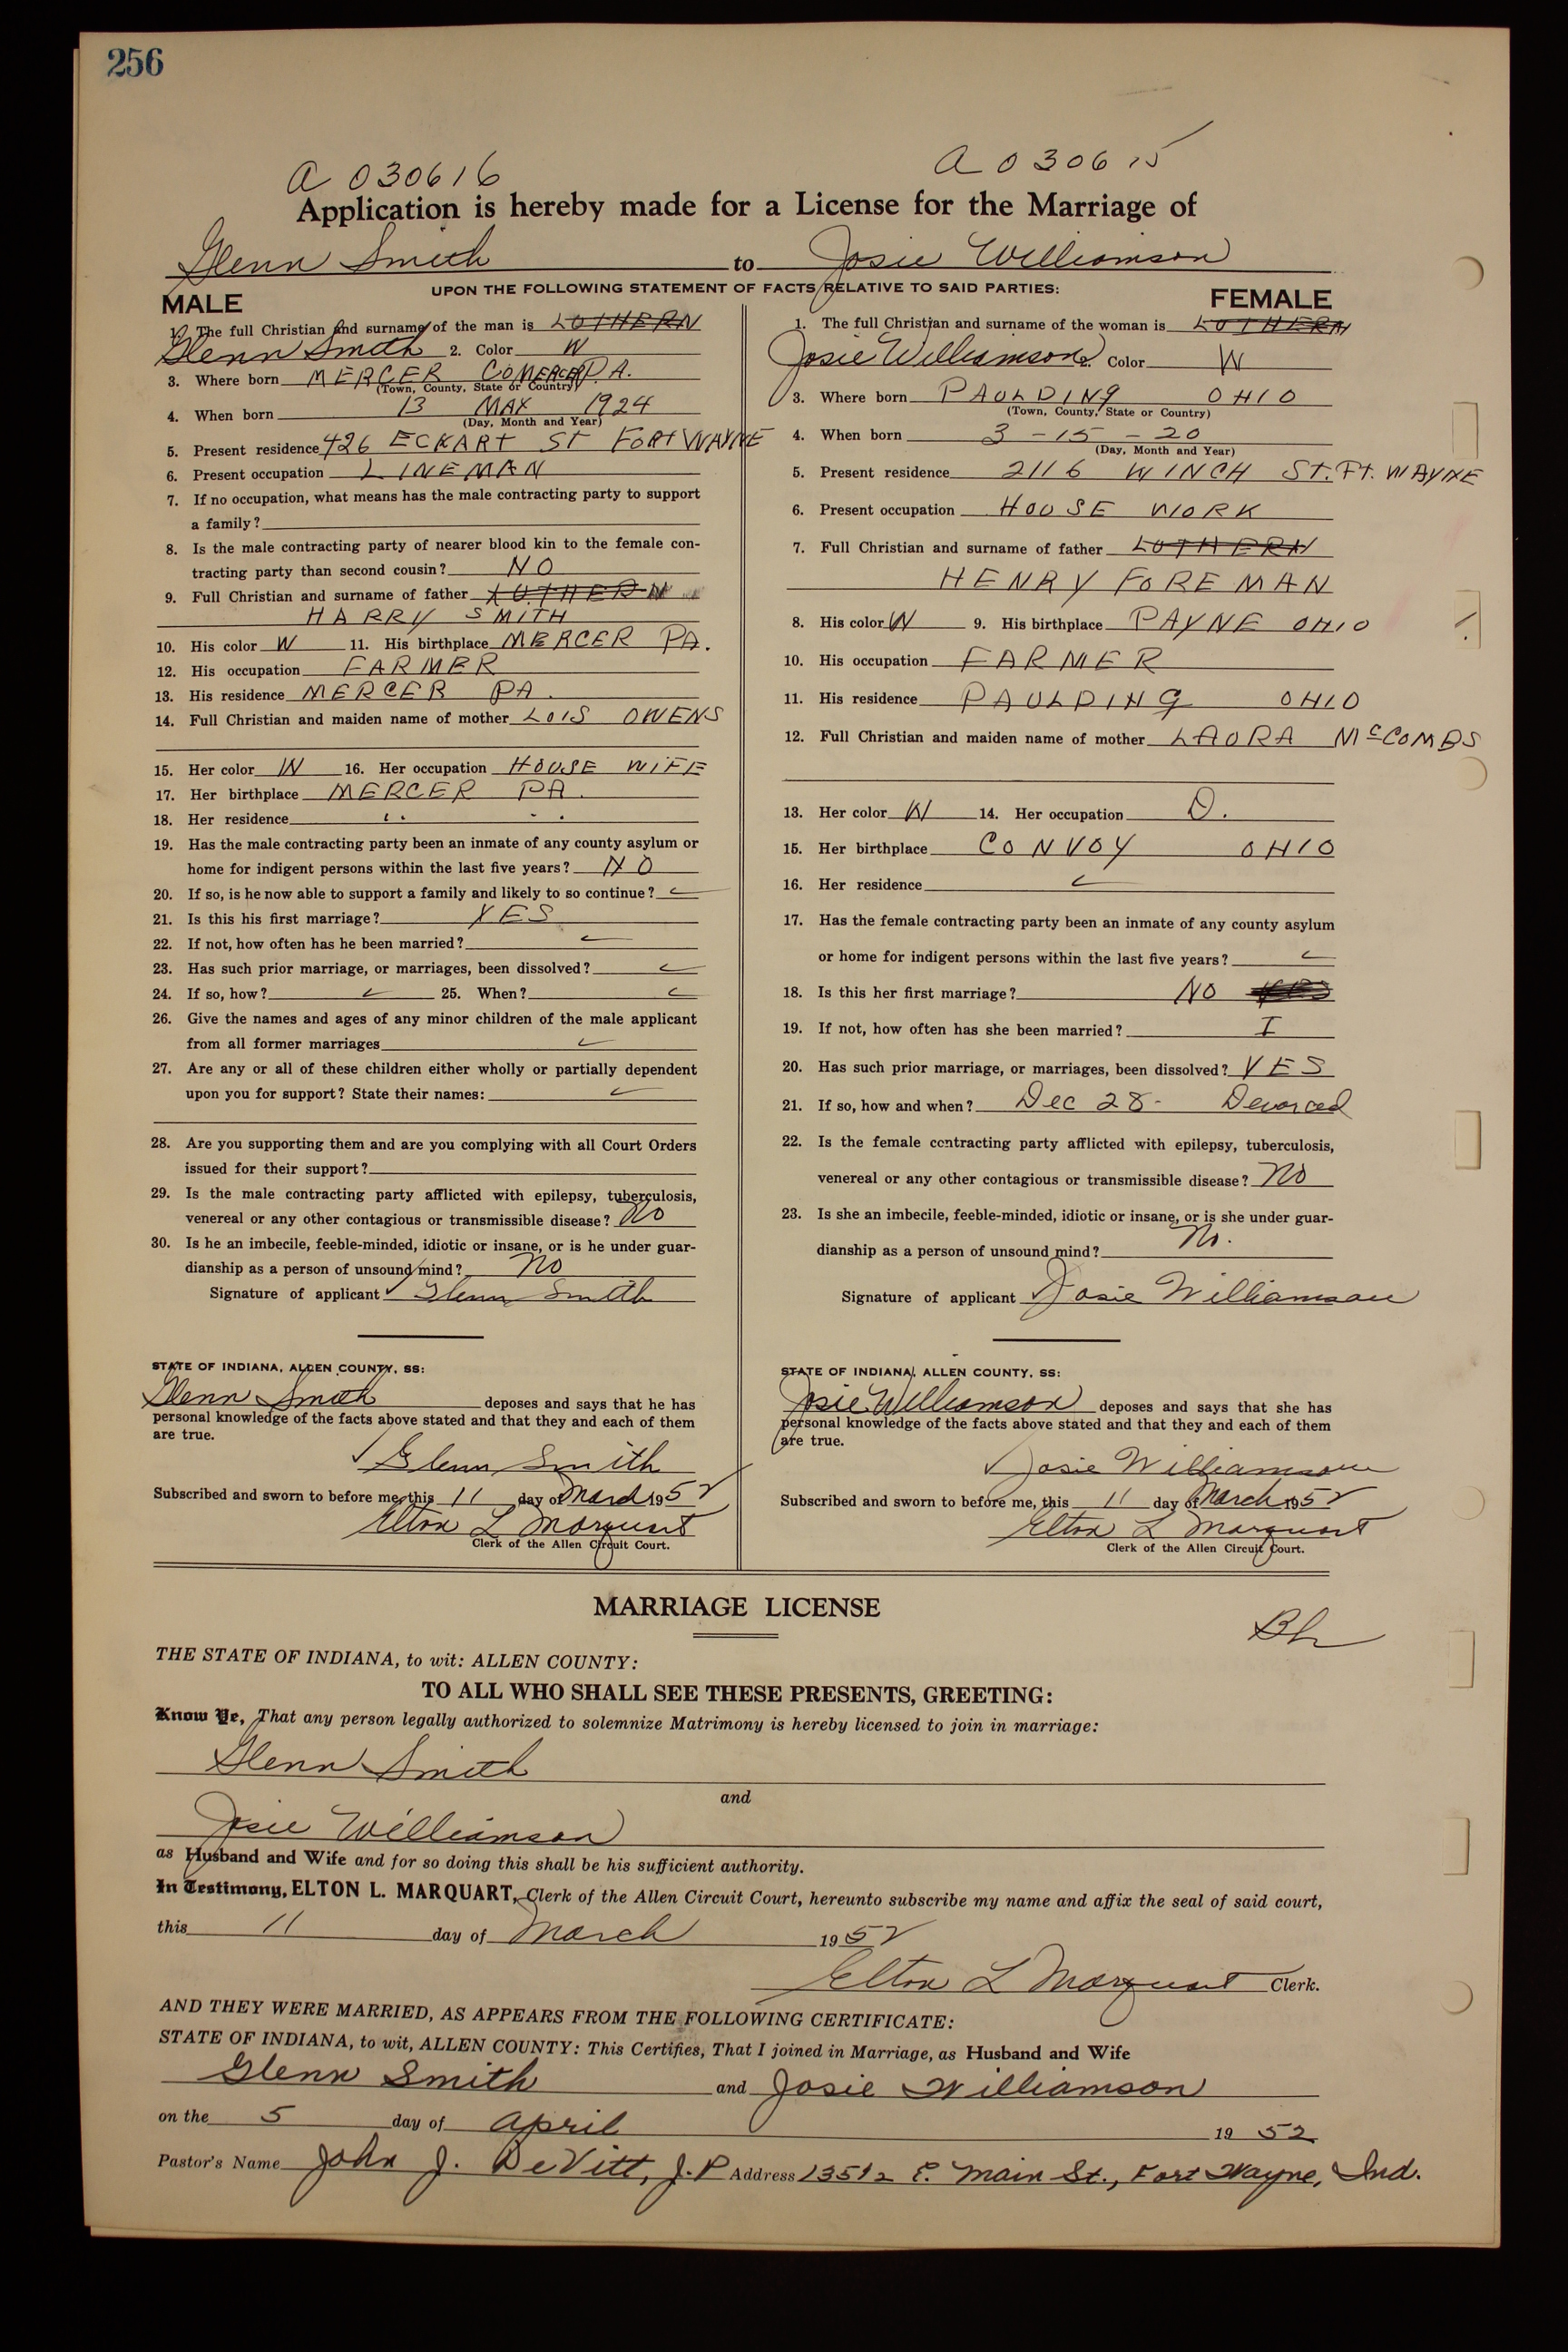 256
A 030616
A 030615
Application is hereby made for a License for the Marriage of
Glenn Smith to Josie Williamson
UPON THE FOLLOWING STATEMENT OF FACTS RELATIVE TO SAID PARTIES:
MALE
1. The full Christian and surname of the man is LUTHERN
Glenn Smith 2. Color W
3. Where born MERCER CO MERCER PA.
(Town, County, State or Country)
4. When born 13 MAY 1924
(Day, Month and Year)
5. Present residence 426 ECKART ST FORT WAYNE
6. Present occupation LINEMAN
7. If no occupation, what means has the male contracting party to support
a family?
8. Is the male contracting party of nearer blood kin to the female con-
tracting party than second cousin? NO
9. Full Christian and surname of father LUTHERN
HARRY SMITH
10. His color W 11. His birthplace MERCER PA.
12. His occupation FARMER
13. His residence MERCER PA.
14. Full Christian and maiden name of mother LOIS OWENS
15. Her color W 16. Her occupation HOUSE WIFE
17. Her birthplace MERCER PA.
18. Her residence " "
19. Has the male contracting party been an inmate of any county asylum or
home for indigent persons within the last five years? NO
20. If so, is he now able to support a family and likely to so continue?
21. Is this his first marriage? YES
22. If not, how often has he been married?
23. Has such prior marriage, or marriages, been dissolved?
24. If so, how? 25. When?
26. Give the names and ages of any minor children of the male applicant
from all former marriages
27. Are any or all of these children either wholly or partially dependent
upon you for support? State their names:
28. Are you supporting them and are you complying with all Court Orders
issued for their support?
29. Is the male contracting party afflicted with epilepsy, tuberculosis,
venereal or any other contagious or transmissible disease? No
30. Is he an imbecile, feeble-minded, idiotic or insane, or is he under guar-
dianship as a person of unsound mind? No
Signature of applicant Glenn Smith
STATE OF INDIANA, ALLEN COUNTY, SS:
Glenn Smith deposes and says that he has
personal knowledge of the facts above stated and that they and each of them
are true.
Glenn Smith
Subscribed and sworn to before me, this 11 day of March 1952
Elton L Marquart
Clerk of the Allen Circuit Court.
FEMALE
1. The full Christian and surname of the woman is LUTHERN
Josie Williamson 2. Color W
3. Where born PAULDING OHIO
(Town, County, State or Country)
4. When born 3 - 15 - 20
(Day, Month and Year)
5. Present residence 2116 WINCH ST. FT. WAYNE
6. Present occupation HOUSE WORK
7. Full Christian and surname of father LUTHERN
HENRY FOREMAN
8. His color W 9. His birthplace PAYNE OHIO
10. His occupation FARMER
11. His residence PAULDING OHIO
12. Full Christian and maiden name of mother LAURA McCOMBS
13. Her color W 14. Her occupation D.
15. Her birthplace CONVOY OHIO
16. Her residence
17. Has the female contracting party been an inmate of any county asylum
or home for indigent persons within the last five years?
18. Is this her first marriage? NO YES
19. If not, how often has she been married? I
20. Has such prior marriage, or marriages, been dissolved? YES
21. If so, how and when? Dec 28- Devorced
22. Is the female contracting party afflicted with epilepsy, tuberculosis,
venereal or any other contagious or transmissible disease? No
23. Is she an imbecile, feeble-minded, idiotic or insane, or is she under guar-
dianship as a person of unsound mind? No.
Signature of applicant Josie Williamson
STATE OF INDIANA, ALLEN COUNTY, SS:
Josie Williamson deposes and says that she has
personal knowledge of the facts above stated and that they and each of them
are true.
Josie Williamson
Subscribed and sworn to before me, this 11 day of March 1952
Elton L Marquart
Clerk of the Allen Circuit Court.
MARRIAGE LICENSE
THE STATE OF INDIANA, to wit: ALLEN COUNTY:
TO ALL WHO SHALL SEE THESE PRESENTS, GREETING:
Know Ye, That any person legally authorized to solemnize Matrimony is hereby licensed to join in marriage:
Glenn Smith
and
Josie Williamson
as Husband and Wife and for so doing this shall be his sufficient authority.
In Testimony, ELTON L. MARQUART, Clerk of the Allen Circuit Court, hereunto subscribe my name and affix the seal of said court,
this 11 day of March 1952
Elton L Marquart Clerk.
AND THEY WERE MARRIED, AS APPEARS FROM THE FOLLOWING CERTIFICATE:
STATE OF INDIANA, to wit, ALLEN COUNTY: This Certifies, That I joined in Marriage, as Husband and Wife
Glenn Smith and Josie Williamson
on the 5 day of April 1952
Pastor's Name John J. DeVitt, J.P Address 135½ E. Main St., Fort Wayne, Ind.